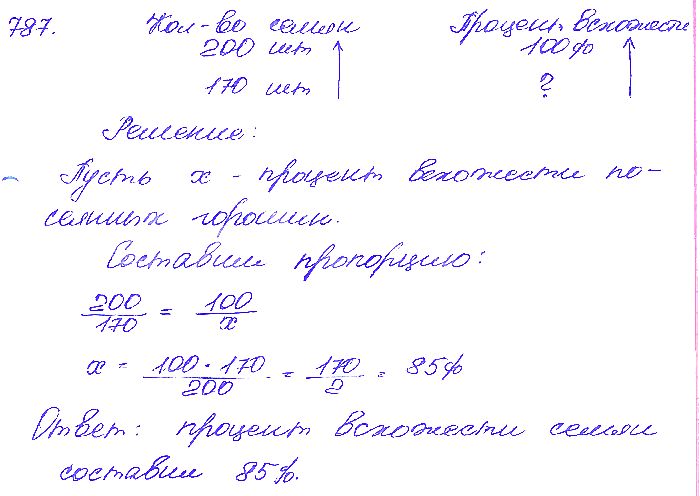 787. Кол-во семян Процент всхожести
200 шт 100%
170 шт ?
Решение:
Пусть x - процент всхожести по-
сеянных горошин.
Составим пропорцию:
200/170 = 100/x
x = 100·170/200 = 170/2 = 85%
Ответ: процент всхожести семян
составил 85%.